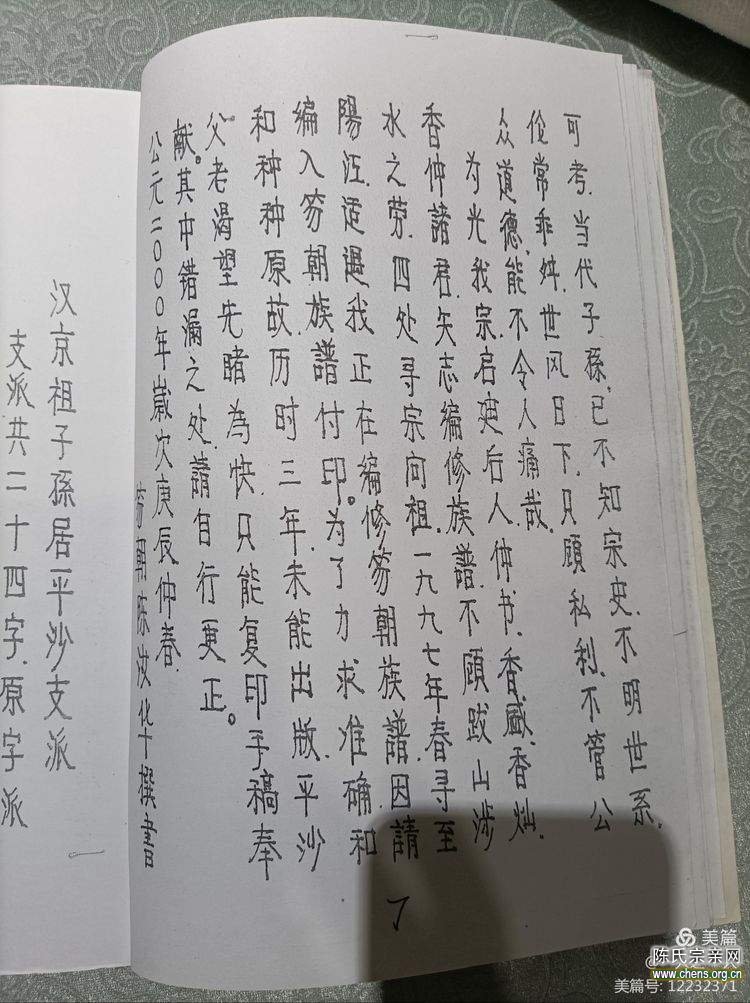 可考.当代子孫,已不知宗史.不明世系.
伦常乖舛.世风日下.只顧私利.不管公
众道德,能不令人痛哉.
为光我宗.启廸后人.仲书.香咸.香灿.
香仲諸君.矢志編修族譜.不顧跋山涉
水之劳.四处寻宗问祖.一九九七年春寻至
陽江.适遇我正在編修芴朝族譜.因請
編入芴朝族譜付印。为了力求准确和
和种种原故.历时三年.未能出版.平沙
父老渴望先睹為快.只能复印手稿奉
献。其中错漏之处.請自行更正。
公元二000年嵗次庚辰仲春.
芴朝陈汝华撰書
7
汉京祖子孫居平沙支派
支派共二十四字.原字派
美篇
陈氏宗亲网
www.chens.org.cn
美篇号: 12232371